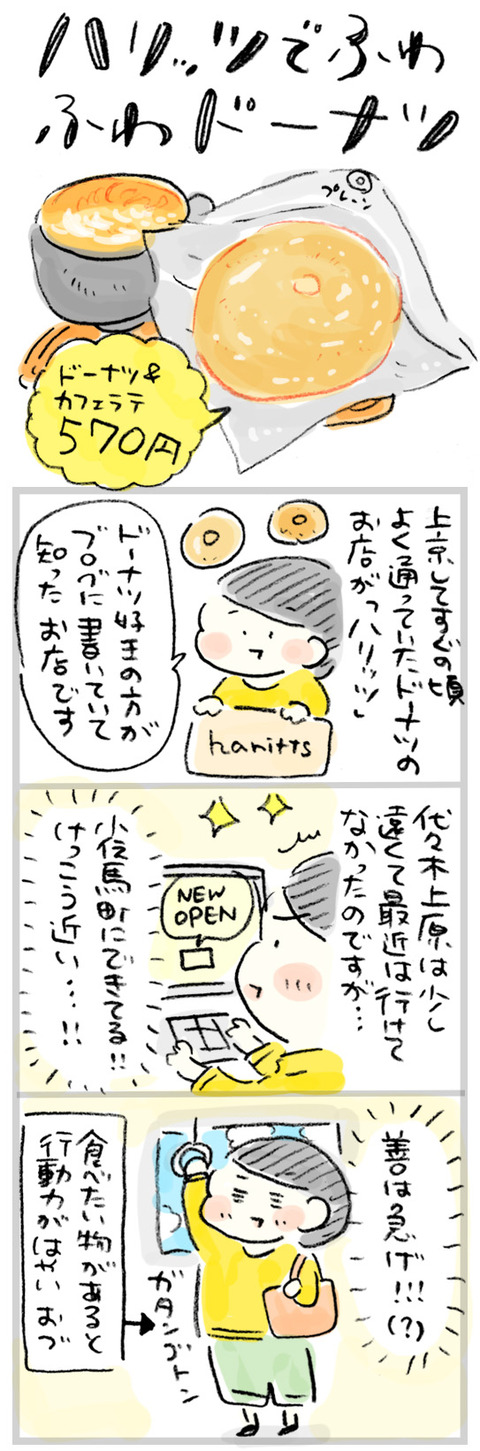 ハリッツでふわ
ふわドーナツ
プレーン
ドーナツ&
カフェラテ
570円
上京してすぐの頃
よく通っていたドーナツの
お店が「ハリッツ」
ドーナツ好きの方が
ブログに書いていて
知ったお店です
haritts
代々木上原は少し
遠くて最近は行けて
なかったのですが…
NEW
OPEN
小伝馬町にできてる!!
けっこう近い…!!
善は急げ!!!(?)
ガタンゴトン
食べたい物があると
行動力がはやいおづ